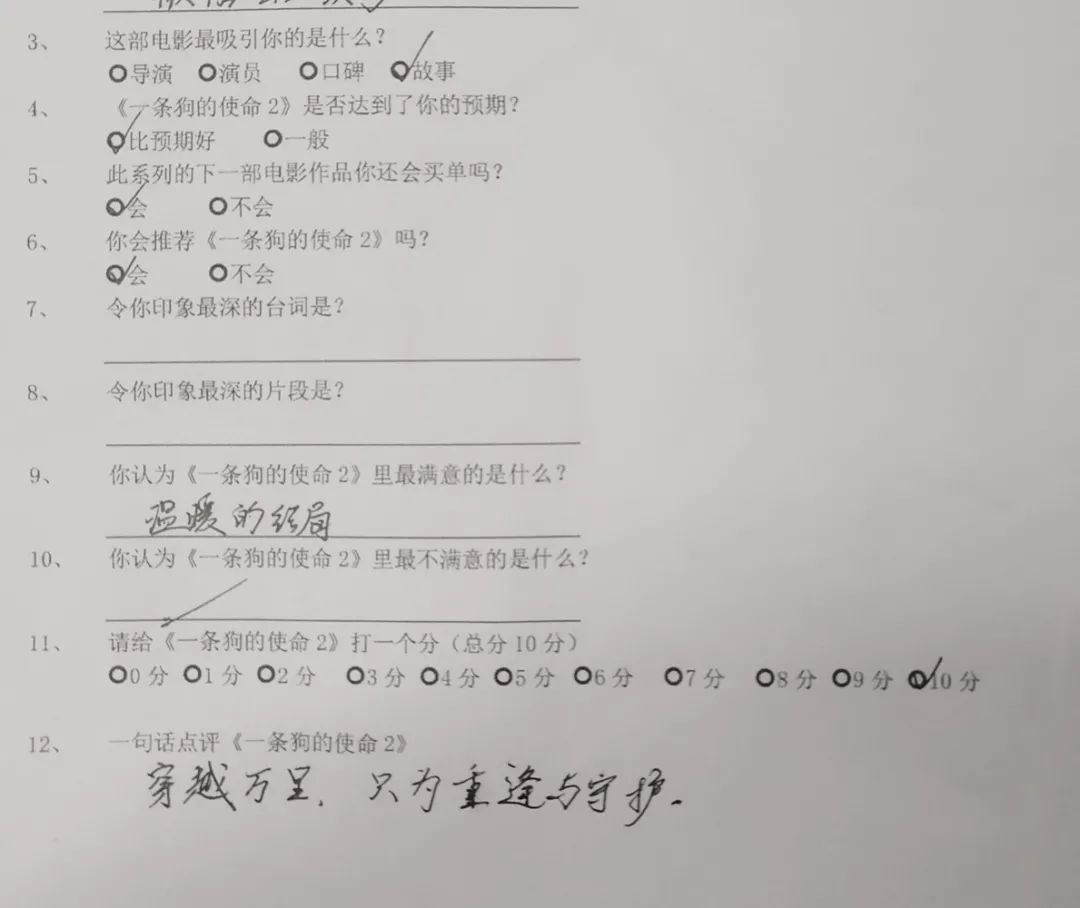 3、 这部电影最吸引你的是什么?
导演 演员 口碑 故事
4、 《一条狗的使命 2》是否达到了你的预期?
比预期好 一般
5、 此系列的下一部电影作品你还会买单吗?
会 不会
6、 你会推荐《一条狗的使命 2》吗?
会 不会
7、 令你印象最深的台词是?
8、 令你印象最深的片段是?
9、 你认为《一条狗的使命 2》里最满意的是什么?
温暖的结局
10、 你认为《一条狗的使命 2》里最不满意的是什么?
11、 请给《一条狗的使命 2》打一个分（总分 10 分）
0 分 1 分 2 分 3 分 4 分 5 分 6 分 7 分 8 分 9 分 10 分
12、 一句话点评《一条狗的使命 2》
穿越万里，只为重逢与守护.